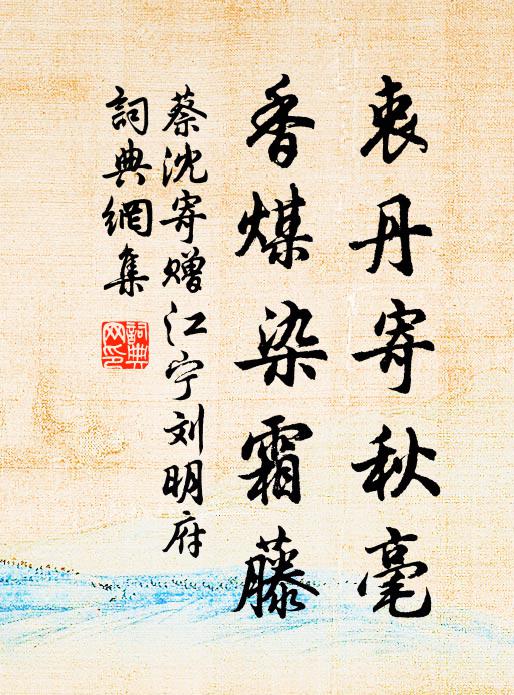 衷丹寄秋毫
香煤染霜藤
蔡沈寄赠江宁刘明府
詞典網集
詞典
网印